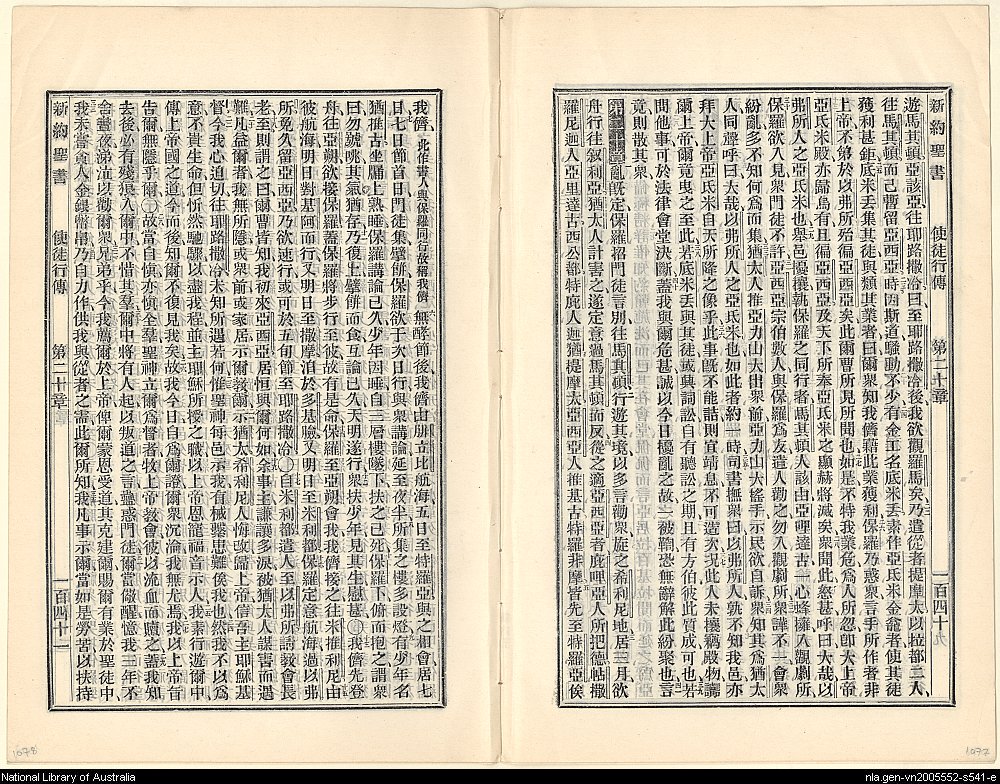 新約聖書 使徒行傳 第二十章 一百四十
遊馬其頓亞該亞往耶路撒冷曰至耶路撒冷後我欲觀羅馬矣乃遣從者提摩太以拉都二人
往馬其頓而己暫留亞西亞時因斯道騷動不少有金工名底米丟素作亞氏米金龕者使其徒
獲利甚鉅底米丟集其徒與類其業者曰爾衆知我儕藉此業獲利保羅乃惑衆言手所作者非
上帝不第於以弗所殆徧亞西亞矣此爾曹所見所聞也如是不特我業危爲人所忽卽大上帝
亞氏米殿亦歸烏有且徧亞西亞及天下所奉亞氏米之顯赫將滅矣衆聞此怒甚呼曰大哉以
弗所人之亞氏米也舉邑擾攘執保羅之同行者馬其頓人該由亞哩達古一心蜂擁入觀劇所
保羅欲入見衆門徒不許亞西亞宗伯數人與保羅爲友遣人勸之勿入觀劇所衆譁不一會衆
紛亂多不知何爲而集猶太人推亞力山大出衆前亞力山大搖手示民欲自訴衆知其爲猶太
人同聲呼曰大哉以弗所人之亞氏米也如此者約一時司書撫衆曰以弗所人孰不知我邑亦
拜大上帝亞氏米自天所降之像乎此事旣不能詰則宜靖息不可造次況此人未攘竊殿物謗
爾上帝爾竟曳之至此若底米丟與其徒或與人訟自有聽訟之期且有方伯彼此質成可也若
問他事可於法律會堂決斷蓋我與爾危甚誠以今日擾亂之故一被鞫恐無辭解此紛聚也言
竟則散其衆
亂旣定保羅招門徒言別往馬其頓行遊其境以多言勸衆旋之希利尼地居三月欲
舟行往叙利亞猶太人計害之遂定意過馬其頓而反從之適亞西亞者庇哩亞人所把德帖撒
羅尼迦人亞里達古西公都特庇人迦猶提摩太亞西亞人推基古特羅非摩皆先至特羅亞俟
我儕此作書人與保羅同行故稱我儕無酵節後我儕由腓立比航海五日至特羅亞與之相會居七
日七日節首日門徒集擘餅保羅欲于次日行與衆講論延至夜半所集之樓多設燈有少年名
猶推古坐牖上熟睡保羅講論已久少年因睡自三層樓墜下扶之已死保羅下俯而抱之謂衆
曰勿號咷其氣猶存乃復上擘餅而食互論已久天明遂行衆扶少年見其生慰甚我儕先登
舟往亞朔欲接保羅蓋保羅將步行至彼故有是命保羅至亞朔會我我儕接之往米推利尼由
彼航海明日對基阿而行又明日至撒摩泊於多基臘又明日至米利都保羅定意航海過以弗
所免久留亞西亞乃欲速行或可於五旬節至耶路撒冷自米利都遣人至以弗所請敎會長
老至則謂之曰爾曹皆知我初來亞西亞居恒與爾何如余事主謙讓多淚被猶太人謀害而遇
難凡益爾者我無所隱或衆前或家居示爾敎爾示猶太希利尼人悔改歸上帝信吾主耶穌基
督今我心迫切往耶路撒冷未知所遇若何惟聖神每邑示我有械繫患難俟我也然我不以爲
意不貴生命但忻然馳驟以盡我程並主耶穌所授之職以上帝恩寵福音示人我素行遊爾中
傳上帝國之道今而後知爾不復見我矣故我今日自爲爾證爾衆沉淪我無尤焉我以上帝旨
告爾無隱乎爾故當自愼亦愼全羣聖神立爾爲督者牧上帝敎會彼以流血而贖之蓋我知
去後必有殘狼入爾中不惜其羣爾中將有人起以叛道之言蠱惑門徒爾當儆醒憶我三年不
舍晝夜涕泣以勸爾衆兄弟乎今我薦爾於上帝俾爾蒙恩受道其克建爾賜有業於聖徒中
我未嘗貪人金銀衣服乃自力作供我與從者之需此爾所知我凡事示爾當如是勞苦以扶持
新約聖書 使徒行傳 第二十章 一百四十一
1078
1077
National Library of Australia
nla.gen-vn2005552-s541-e